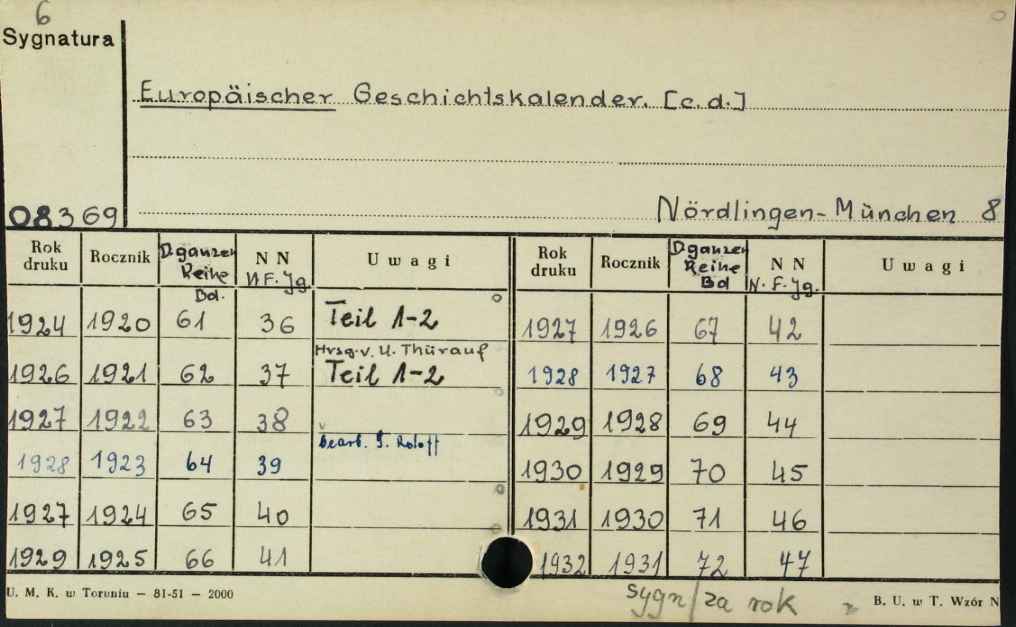 6
Sygnatura
Europäischer Geschichtskalender. [c.d.]
08369
Nördlingen-München 8
Rok druku Rocznik D.ganzen Reihe Bd. N N N.F.Jg. Uwagi Rok druku Rocznik D.ganzen Reihe Bd N N N.F.Jg. Uwagi
1924 1920 61 36 Teil 1-2 1927 1926 67 42
Hrsg.v. U. Thürauf
1926 1921 62 37 Teil 1-2 1928 1927 68 43
1927 1922 63 38 1929 1928 69 44
Bearb. G. Roloff
1928 1923 64 39 1930 1929 70 45
1927 1924 65 40 1931 1930 71 46
1929 1925 66 41 1932 1931 72 47
U. M. K. w Toruniu – 81-51 – 2000
sygn/za rok
B. U. w T. Wzór N